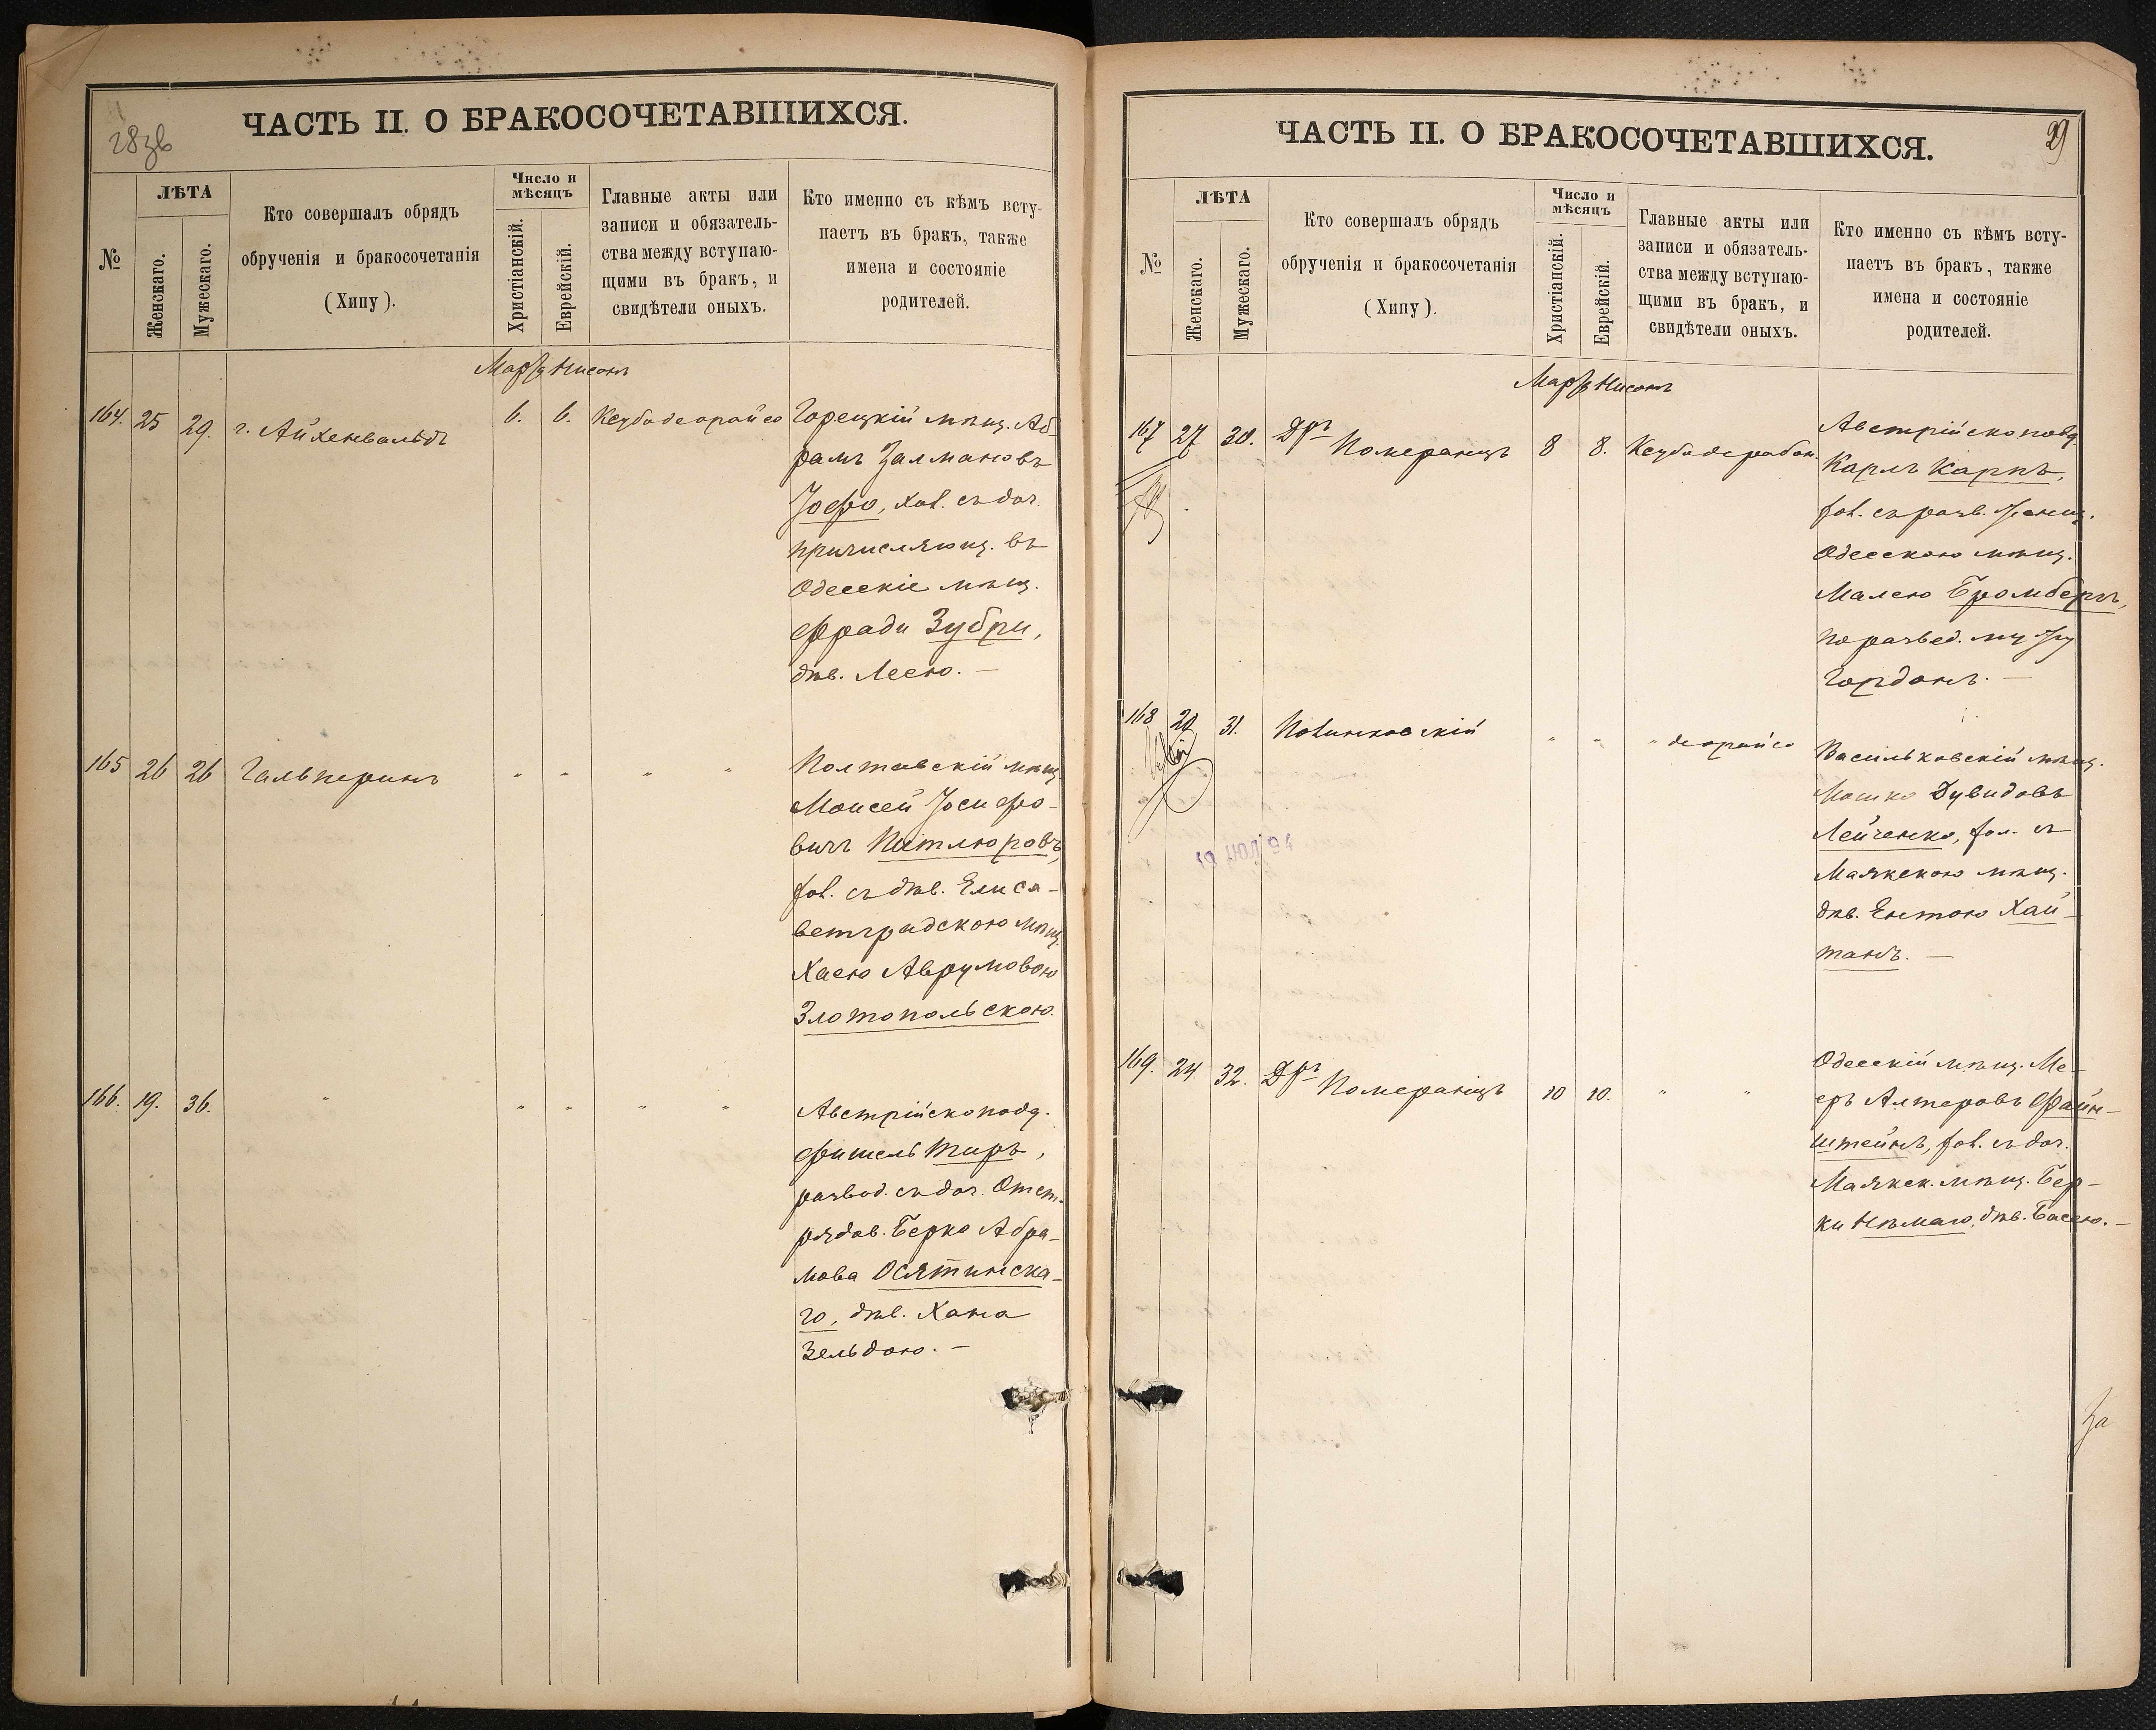 28зв
ЧАСТЬ II. О БРАКОСОЧЕТАВШИХСЯ.
№
ЛѢТА
Женскаго.
Мужескаго.
Кто совершалъ обрядъ
обрученія и бракосочетанія
(Хипу).
Число и
мѣсяцъ
Христіанскій.
Еврейскій.
Главные акты или
записи и обязатель-
ства между вступаю-
щими въ бракъ, и
свидѣтели оныхъ.
Кто именно съ кѣмъ всту-
паетъ въ бракъ, также
имена и состояніе
родителей.
Нисонъ
164. 25 29. г. Айхенвальдъ 6. 6. Ксубо деорайсо Горецкій мѣщ. Аб-
рамъ Залмановъ
Іоффо, хол. съ доч.
причисляющ. въ
Одесскіе мѣщ.
Фради Зубри,
дѣв. Леею. —
165 26 26 Гальперинъ " " " " Полтавскій мѣщ.
Моисей Іосифо-
вичъ Питлюровъ,
хол. съ дѣв. Елиса-
ветградскою мѣщ.
Хаею Аврумовою
Злотопольскою.
166. 19. 36. " " " " " Австрійскоподд.
Фишель Тиръ,
развод. съ доч. Отст.
рядов. Берко Абра-
мова Осятинска-
го, дѣв. Хана
Зельдою. —
29
ЧАСТЬ II. О БРАКОСОЧЕТАВШИХСЯ.
№
ЛѢТА
Женскаго.
Мужескаго.
Кто совершалъ обрядъ
обрученія и бракосочетанія
(Хипу).
Число и
мѣсяцъ
Христіанскій.
Еврейскій.
Главные акты или
записи и обязатель-
ства между вступаю-
щими въ бракъ, и
свидѣтели оныхъ.
Кто именно съ кѣмъ всту-
паетъ въ бракъ, также
имена и состояніе
родителей.
Нисонъ
167 27 30. Дръ Померанцъ 8 8. Ксубо дерабон. Австрійскоподд.
Карлъ Карпъ,
хол. съ разв.
Одесскою мѣщ.
Малею Бромбергъ,
по развед. мужу
Гордонъ. —
168 31. " " " деорайсо Васильковскій мѣщ.
Мошко Дувидовъ
Лейченко, хол. съ
Маякскою мѣщ.
дѣв. Ентою Хай-
танъ. —
169. 24. 32. Дръ Померанцъ 10 10. " " Одесскій мѣщ. Ме-
еръ Алтеровъ Файн-
штейнъ, хол. съ доч.
Маякск. мѣщ. Бер-
ки Нѣмаго, дѣв. Басею. —